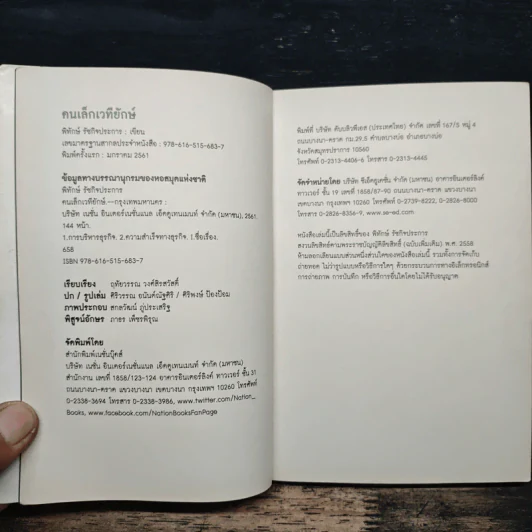 คนเล็กเวทียักษ์
พิทักษ์ รัชกิจประการ : เขียน
เลขมาตรฐานสากลประจำหนังสือ : 978-616-515-683-7
พิมพ์ครั้งแรก : มกราคม 2561
ข้อมูลทางบรรณานุกรมของหอสมุดแห่งชาติ
พิทักษ์ รัชกิจประการ
คนเล็กเวทียักษ์.--กรุงเทพมหานคร :
บริษัท เนชั่น อินเตอร์เนชั่นแนล เอ็ดดูเทนเมนท์ จำกัด (มหาชน), 2561.
144 หน้า.
1.การบริหารธุรกิจ. 2.ความสำเร็จทางธุรกิจ. I.ชื่อเรื่อง.
658
ISBN 978-616-515-683-7
เรียบเรียง ฤทัยวรรณ วงศ์สิรสวัสดิ์
ปก / รูปเล่ม ศิริวรรณ อนันต์ณัฐศิริ / ศิริพงษ์ ป้องป้อม
ภาพประกอบ สกลวัฒน์ ภู่ประเสริฐ
พิสูจน์อักษร ภาธร เพ็ชรพิรุณ
จัดพิมพ์โดย
สำนักพิมพ์เนชั่นบุ๊คส์
บริษัท เนชั่น อินเตอร์เนชั่นแนล เอ็ดดูเทนเมนท์ จำกัด (มหาชน)
สำนักงาน เลขที่ 1858/123-124 อาคารอินเตอร์ลิงค์ ทาวเวอร์ ชั้น 31
ถนนบางนา-ตราด แขวงบางนา เขตบางนา กรุงเทพฯ 10260 โทรศัพท์
0-2338-3694 โทรสาร 0-2338-3986, www.twitter.com/Nation_
Books, www.facebook.com/NationBooksFanPage
พิมพ์ที่ บริษัท ดับบลิวพีเอส (ประเทศไทย) จำกัด เลขที่ 167/5 หมู่ 4
ถนนบางนา-ตราด กม.29.5 ตำบลบางบ่อ อำเภอบางบ่อ
จังหวัดสมุทรปราการ 10560
โทรศัพท์ 0-2313-4406-6 โทรสาร 0-2313-4445
จัดจำหน่ายโดย บริษัท ซีเอ็ดยูเคชั่น จำกัด (มหาชน) อาคารอินเตอร์ลิงค์
ทาวเวอร์ ชั้น 19 เลขที่ 1858/87-90 ถนนบางนา-ตราด แขวงบางนา
เขตบางนา กรุงเทพฯ 10260 โทรศัพท์ 0-2739-8222, 0-2826-8000
โทรสาร 0-2826-8356-9, www.se-ed.com
หนังสือเล่มนี้เป็นลิขสิทธิ์ของ พิทักษ์ รัชกิจประการ
สงวนลิขสิทธิ์ตามพระราชบัญญัติลิขสิทธิ์ (ฉบับเพิ่มเติม) พ.ศ. 2558
ห้ามลอกเลียนแบบส่วนหนึ่งส่วนใดของหนังสือเล่มนี้ รวมทั้งการจัดเก็บ
ถ่ายทอด ไม่ว่ารูปแบบหรือวิธีการใดๆ ด้วยกระบวนการทางอิเล็กทรอนิกส์
การถ่ายภาพ การบันทึก หรือวิธีการอื่นใดโดยไม่ได้รับอนุญาต